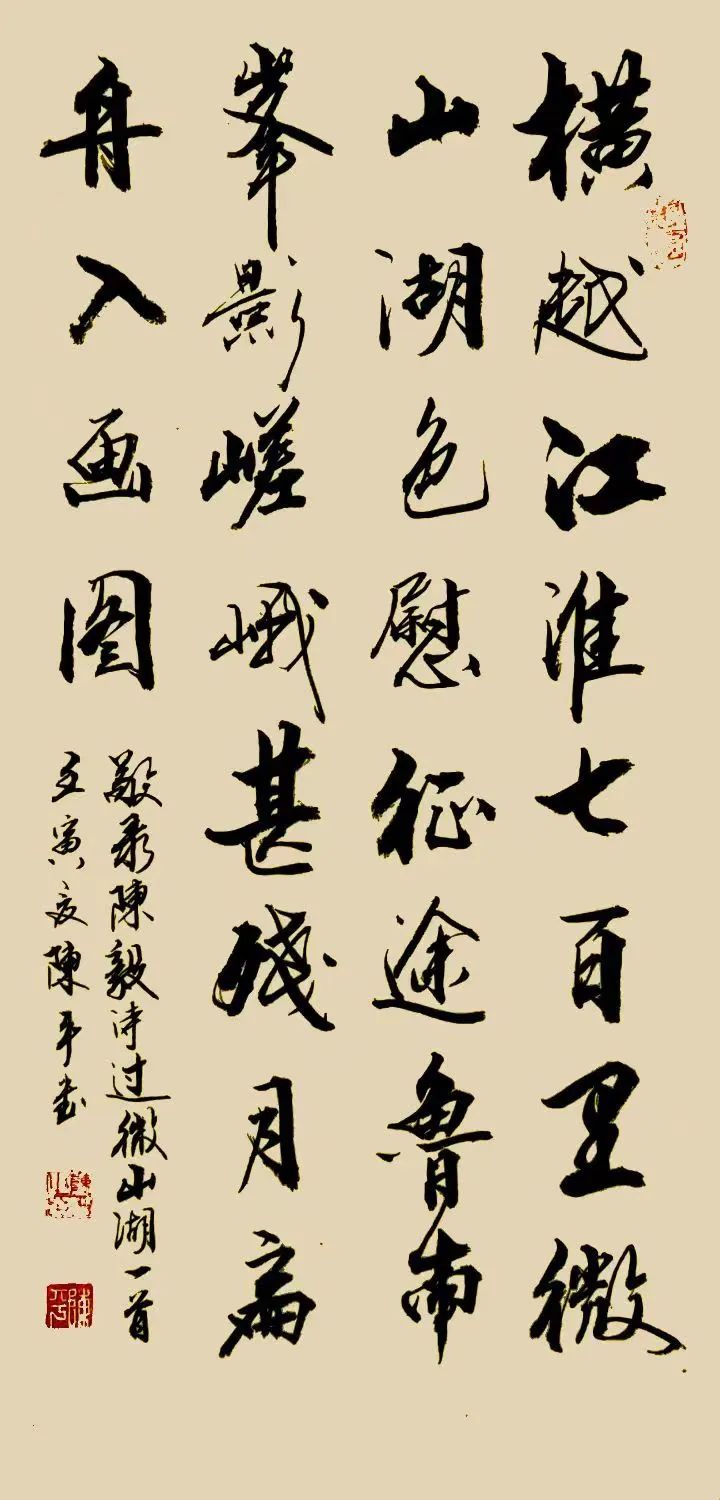 横越江淮七百里微
山湖色慰征途鲁南
峯影嵯峨甚残月扁
舟入画图
敬录陳毅诗过微山湖一首
壬寅夏陳平书